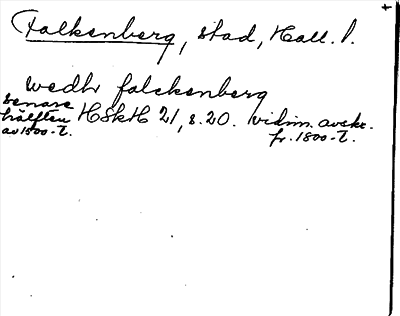 Falkenberg, stad, Hall. l.
wedh falckenberg
senare
hälften HSkH 21, s. 20. vidim. avskr.
av 1500-t. fr. 1800-t.